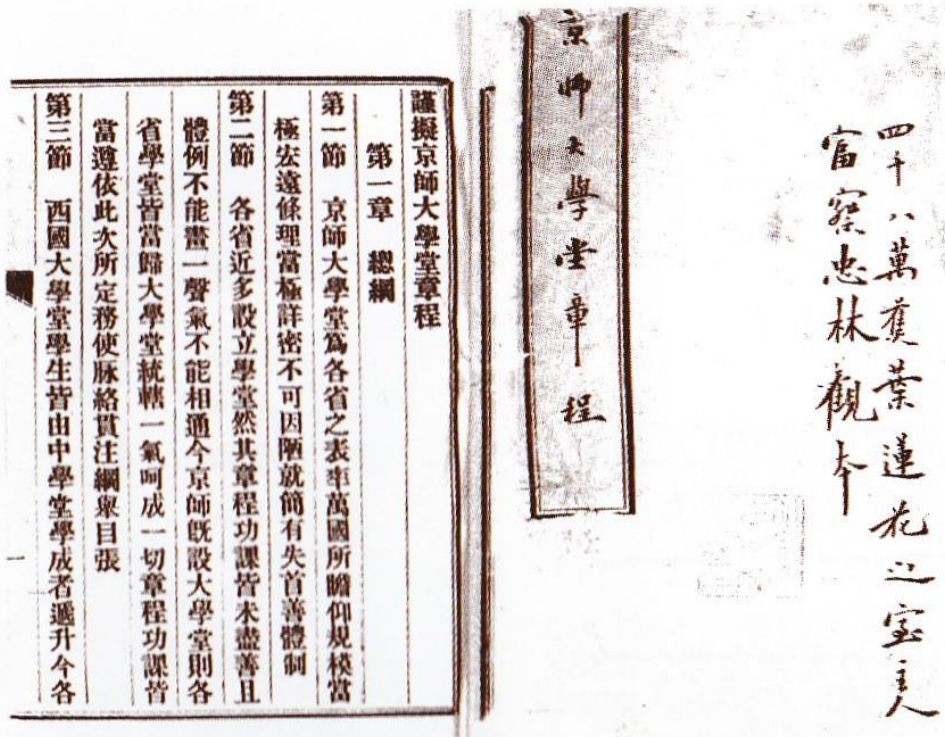 四十八萬葉蓮花之室主人
富察忠林觀本
京師大學堂章程
謹擬京師大學堂章程
第一章　總綱
第一節　京師大學堂爲各省之表率萬國所瞻仰規模當
極宏遠條理當極詳密不可因陋就簡有失首善體制
第二節　各省近多設立學堂然其章程功課皆未盡善且
體例不能畫一聲氣不能相通今京師旣設大學堂則各
省學堂皆當歸大學堂統轄一氣呵成一切章程功課皆
當遵依此次所定務使脈絡貫注綱舉目張
第三節　西國大學堂學生皆由中學堂學成者遞升今各
一